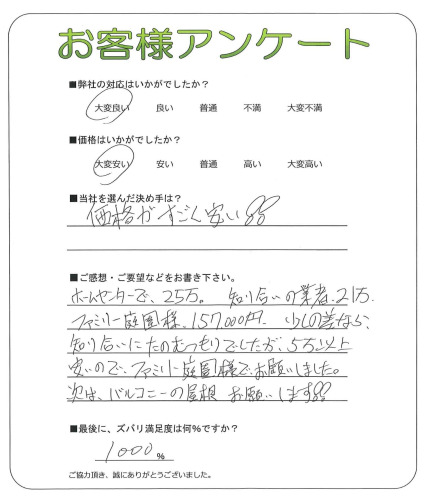 お客様アンケート
■弊社の対応はいかがでしたか？
大変良い 良い 普通 不満 大変不満
■価格はいかがでしたか？
大変安い 安い 普通 高い 大変高い
■当社を選んだ決め手は？
価格がすごく安い!!
■ご感想・ご要望などをお書き下さい。
ホームセンターで、25万。 知り合いの業者、21万、
ファミリー庭園様、157,000円、少しの差なら、
知り合いにたのむつもりでしたが、5万以上
安いので、ファミリー庭園様でお願いしました。
次は、バルコニーの屋根 お願いします!!
■最後に、ズバリ満足度は何%ですか？
1000 %
ご協力頂き、誠にありがとうございました。